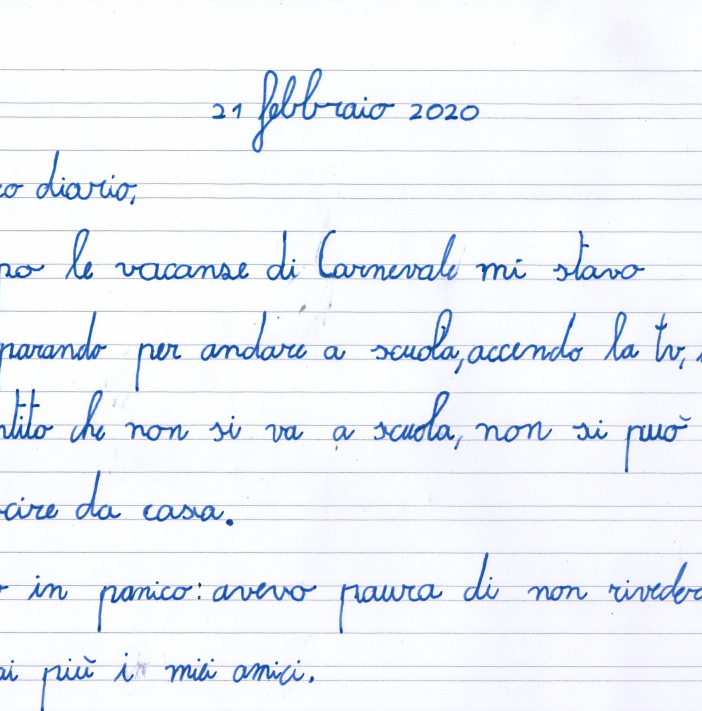 21 febbraio 2020
o diario,
no le vacanze di Carnevale mi stavo
parando per andare a scuola, accendo la tv,
ntito che non si va a scuola, non si può
cire da casa.
in panico: avevo paura di non riveder
ai più i miei amici.